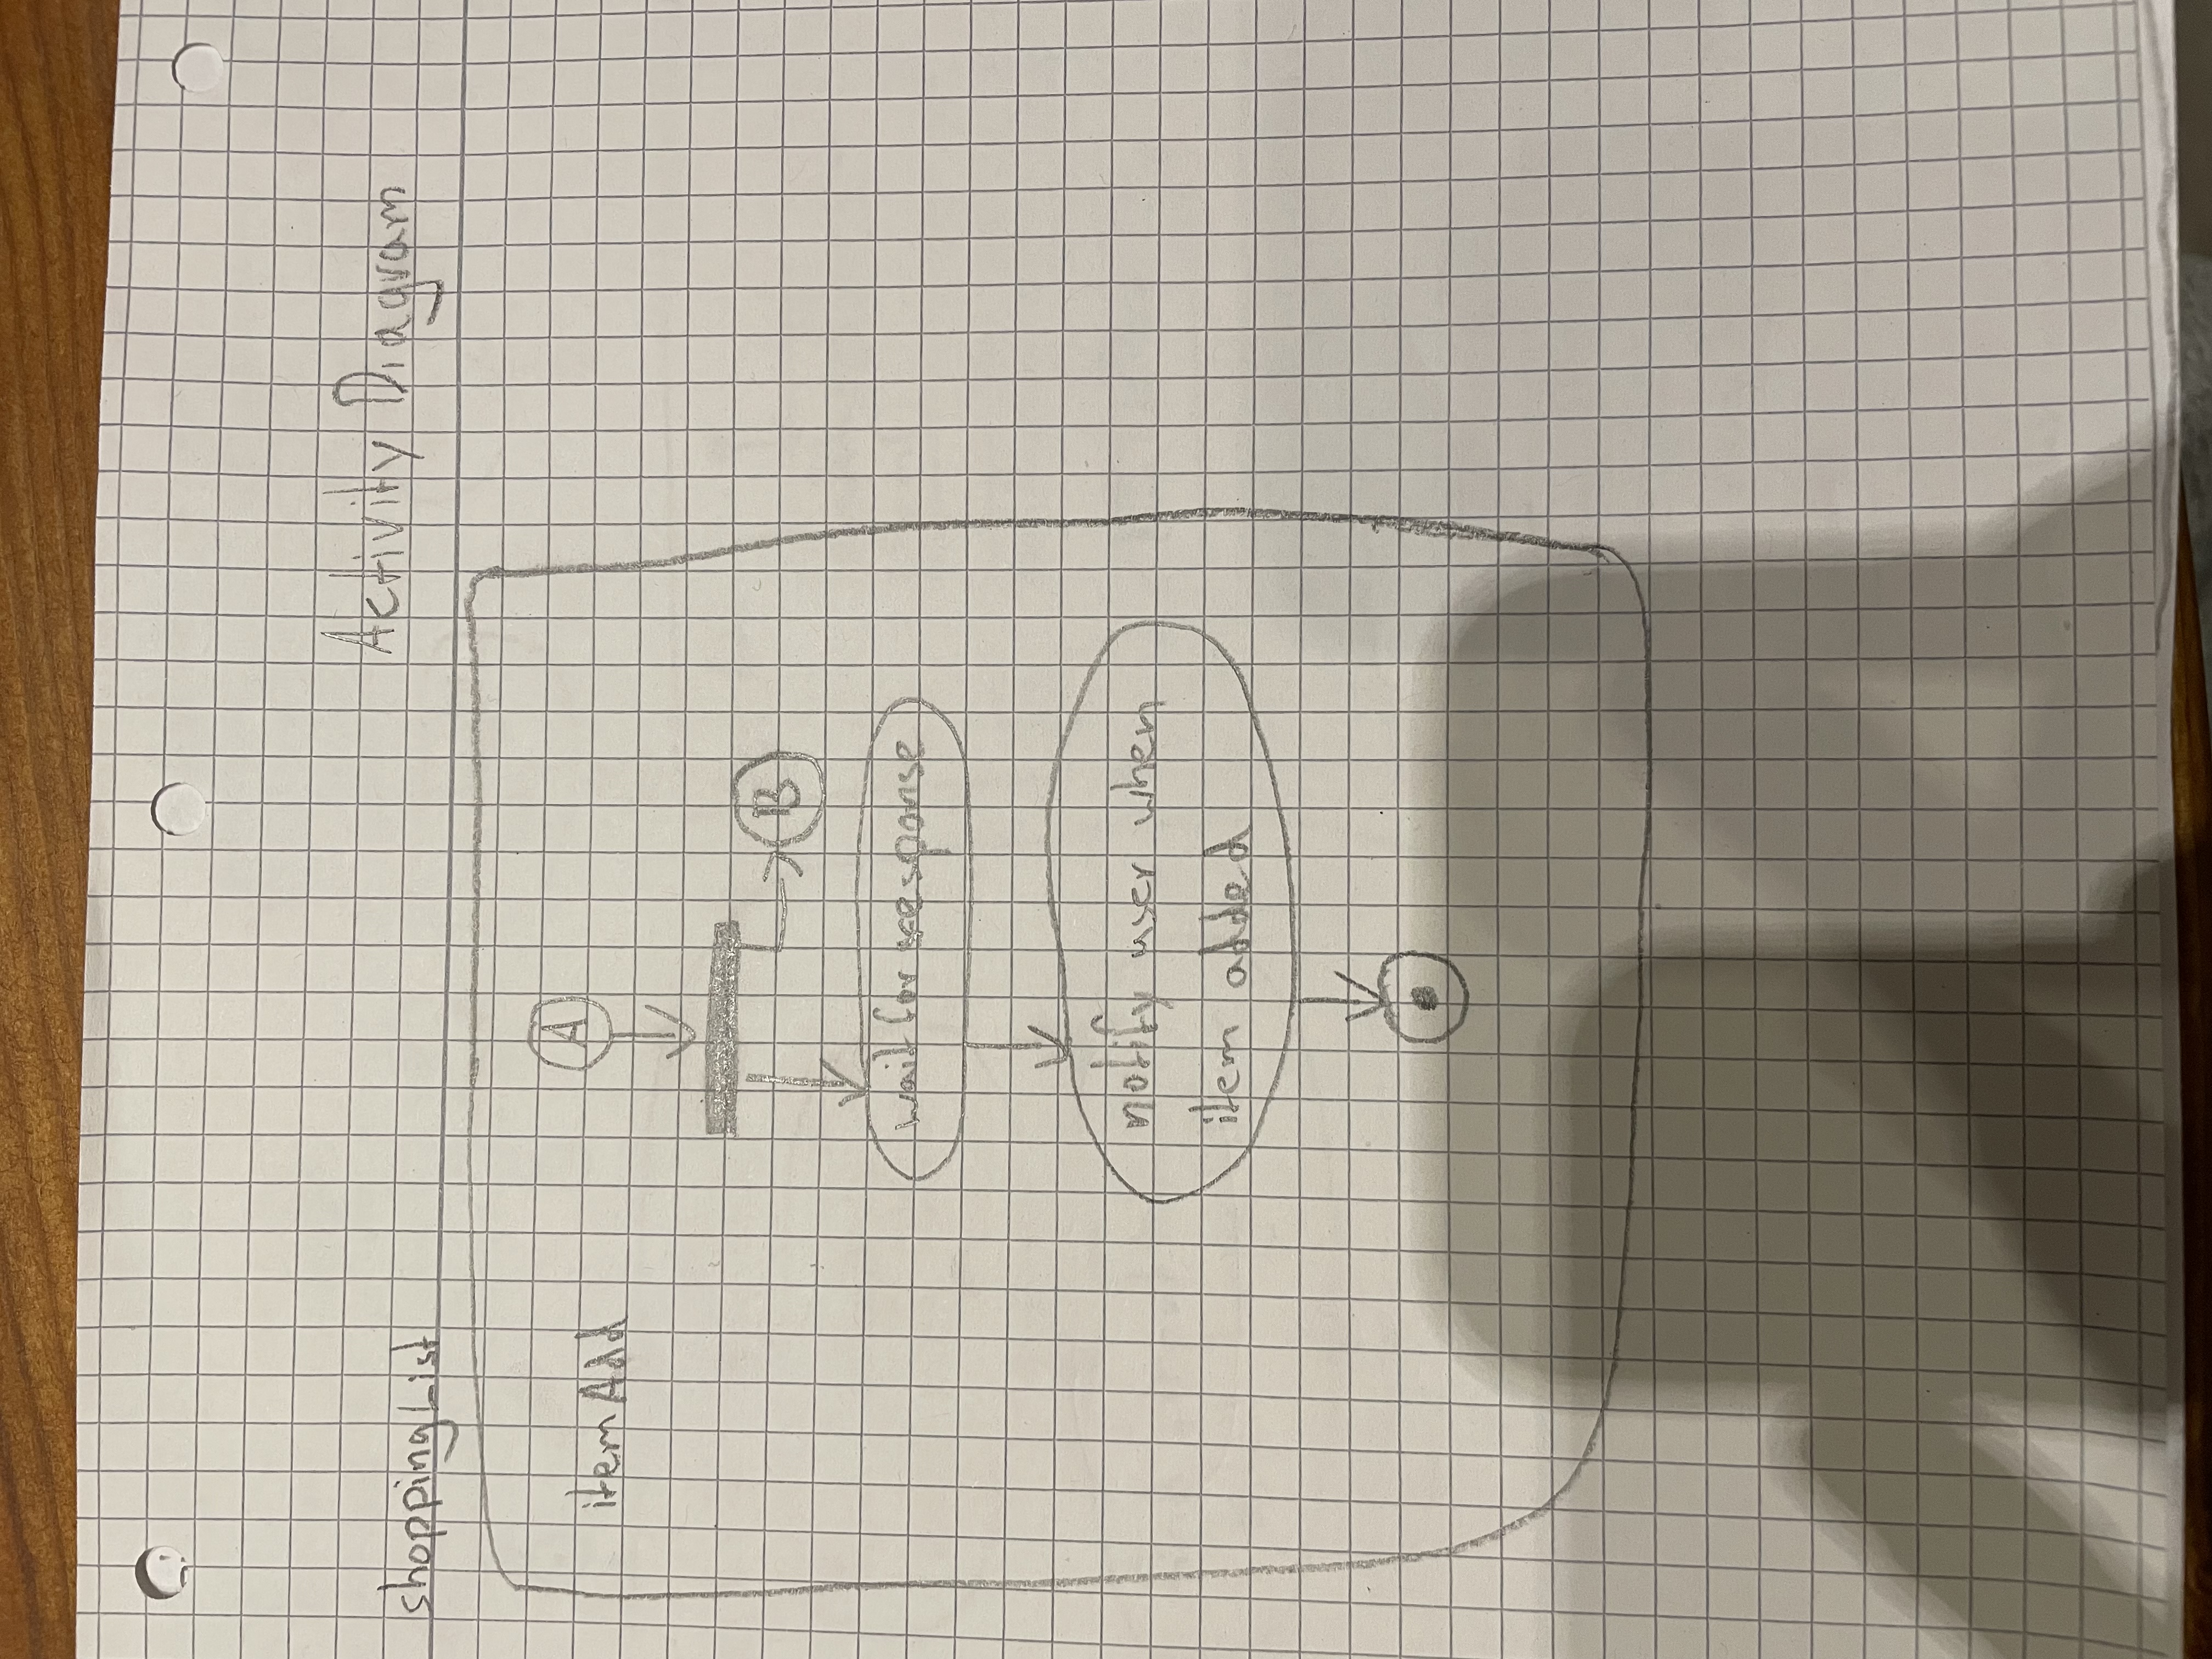 Activity Diagram
shoppingList
itemAdd
A
B
wait for response
notify user when
item added